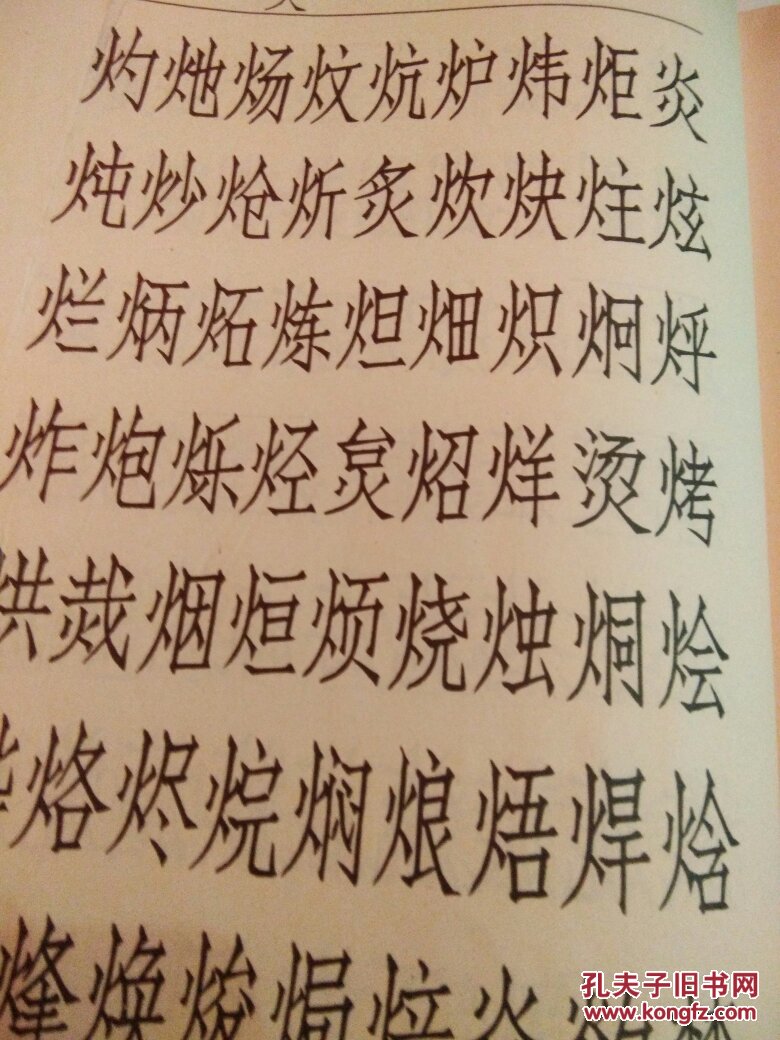 灼灺炀炆炕炉炜炬炎
炖炒炝炘炙炊炔炷炫
烂炳炻炼炟畑炽炯烀
炸炮烁烃炱炤烊烫烤
烘烖烟烜烦烧烛烔烩
烨烙烬烷焖烺焐焊焓
烽焕焌焗
孔夫子旧书网
www.kongfz.com